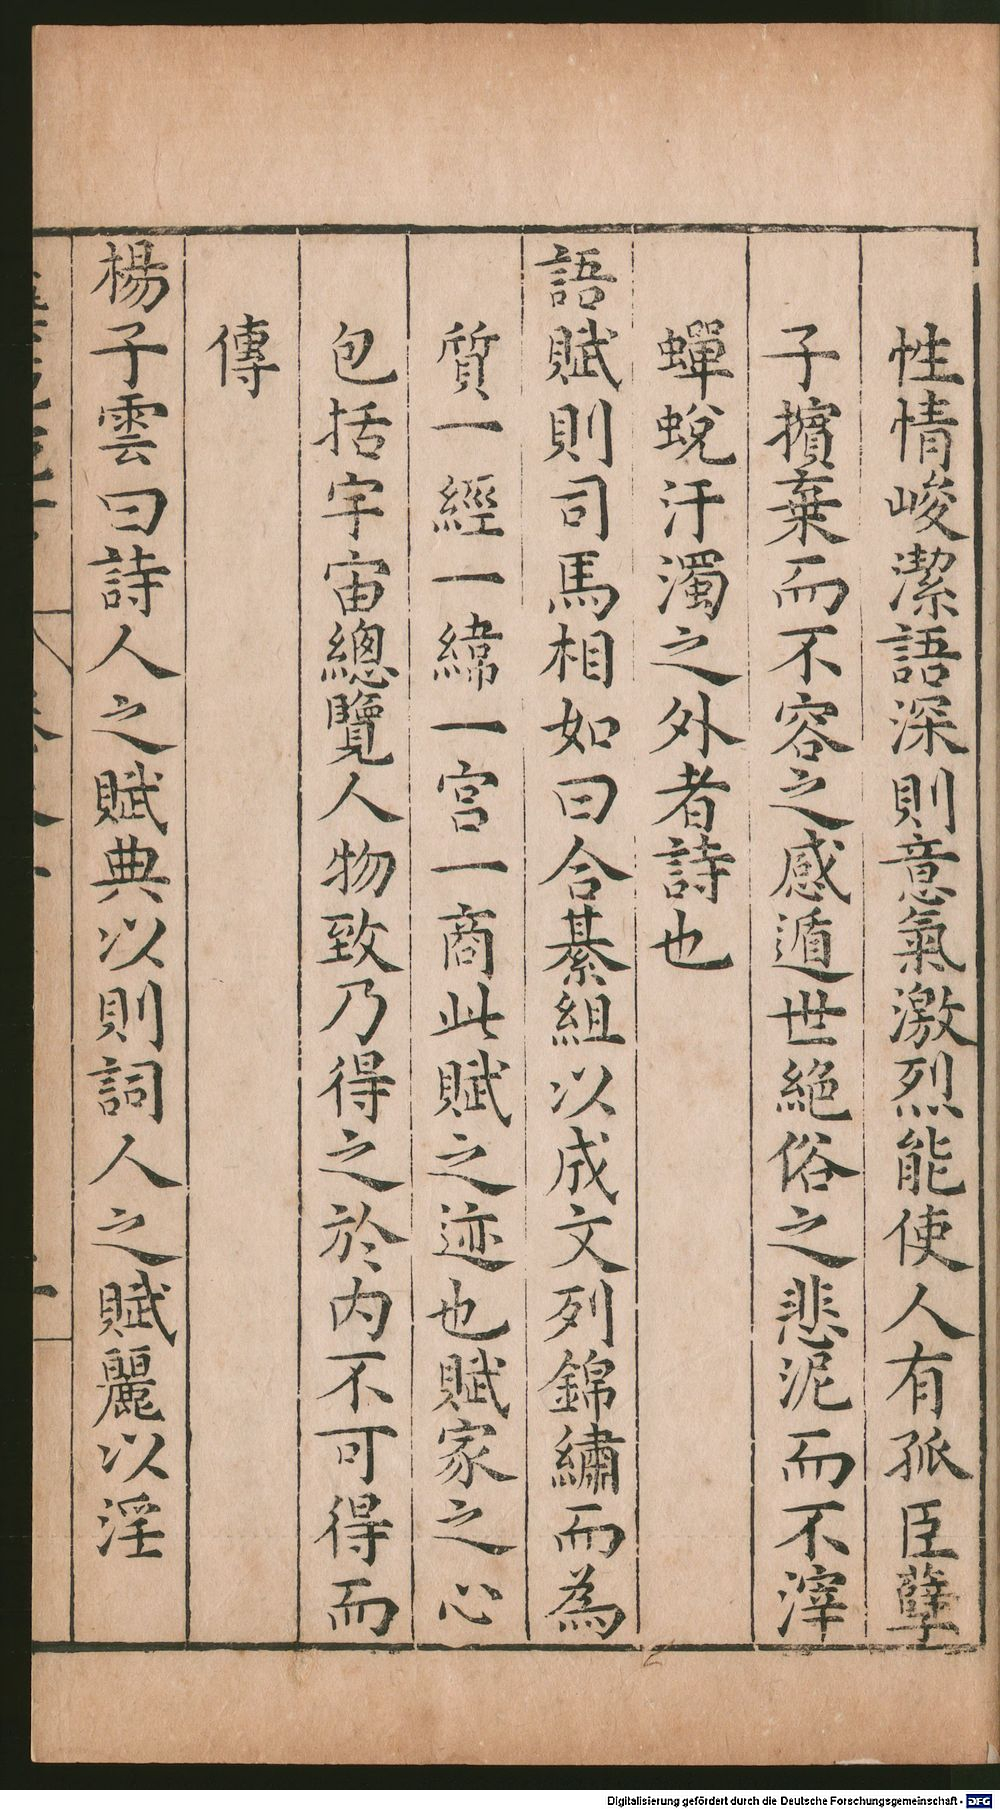 性情峻潔語深則意氣激烈能使人有孤臣孽
子擯棄而不容之感遁世絕俗之悲泥而不滓
蟬蛻汙濁之外者詩也
語賦則司馬相如曰合綦組以成文列錦繡而為
質一經一緯一宮一商此賦之迹也賦家之心
包括宇宙總覽人物致乃得之於內不可得而
傳
楊子雲曰詩人之賦典以則詞人之賦麗以淫
Digitalisierung gefördert durch die Deutsche Forschungsgemeinschaft - DFG